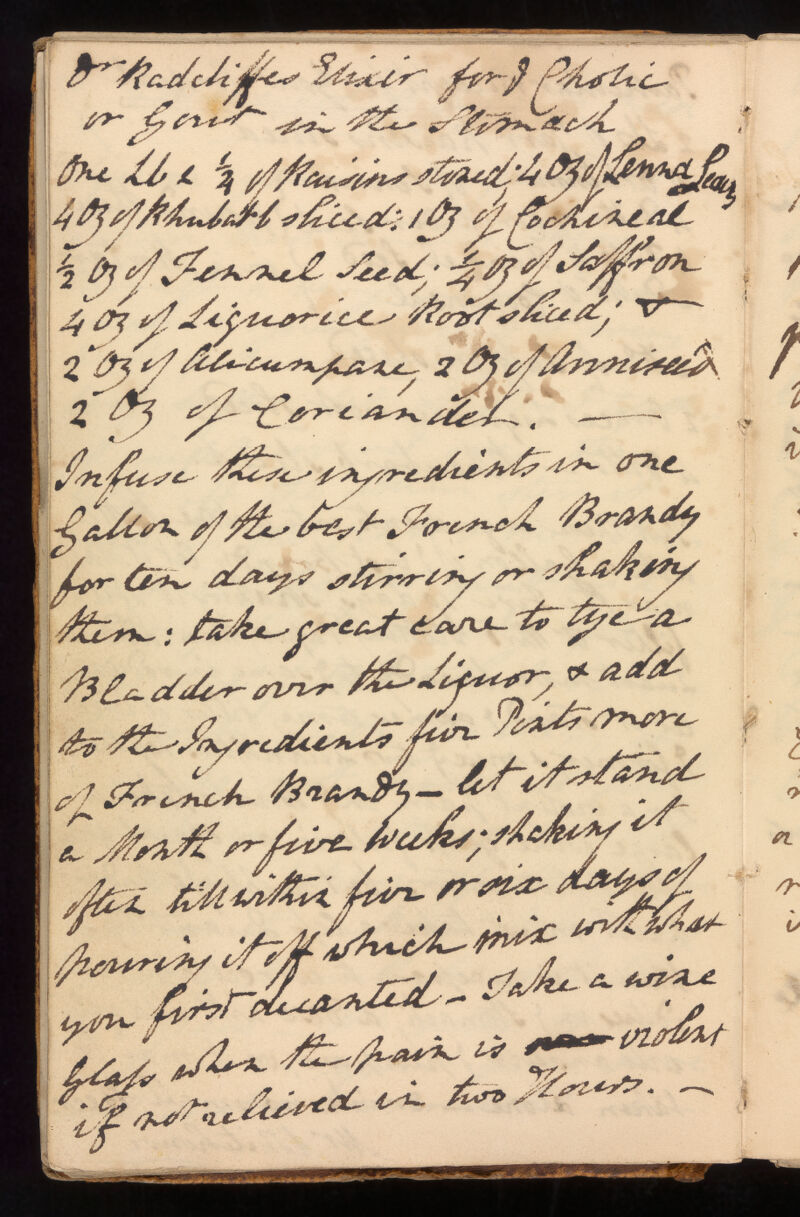 Dr Radcliffes Elixir for ye Cholic
or Gout in the Stomach
One Lb & ¼ of Raisins stoned; 4 Oz of Senna Leavs
4 Oz of Rhubarb sliced: 1 Oz of Cochineal
½ Oz of Fennel Seed; ¼ Oz of Saffron
4 Oz of Liquorice Root sliced; &
2 Oz of Alicumpane, 2 Oz of Anniseed
2 Oz of Coriander. —
Infuse these ingredients in one
Gallon of the best French Brandy
for ten days stirring or shaking
them: take great care to tye a
Bladder over the Liquor, & add
to the Ingredients five Pints more
of French Brandy — let it stand
a Month or five weeks; shaking it
often till within five or six days of
pouring it off which mix with what
you first decanted — Take a wine
Glass when the pain is violent
if not relieved in two Hours. —